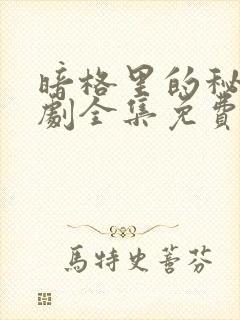 暗格里的秘
劇全集免費
馬特史菩芬